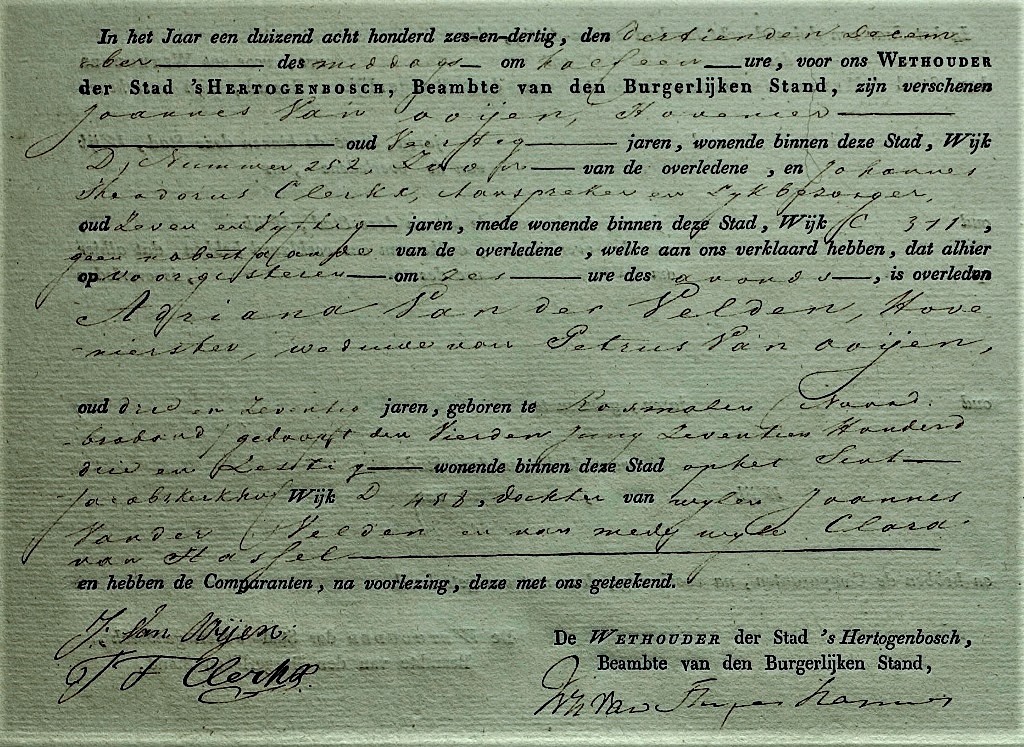 In het Jaar een duizend acht honderd zes-en-dertig, den dertienden Decem
ber des middags om half een ure, voor ons WETHOUDER
der Stad 'sHERTOGENBOSCH, Beambte van den Burgerlijken Stand, zijn verschenen
Joannes Van ooijen, Hovenier
oud Veertig jaren, wonende binnen deze Stad, Wijk
D, Nummer 252, Zoon van de overledene, en Johannes
Theodorus Clerkx, Aanspreker en Lykbezorger,
oud Zeven en Vyftig jaren, mede wonende binnen deze Stad, Wijk C 311,
geen nabestaande van de overledene, welke aan ons verklaard hebben, dat alhier
op voorgisteren om zes ure des avonds, is overleden
Adriana Van der Velden, Hove
nierster, weduwe van Petrus Van ooijen,
oud drie en Zeventig jaren, geboren te Rosmalen (Noord
braband) gedoopt den Vierden Juny Zeventien Honderd
drie en Zestig wonende binnen deze Stad op het Sint
Jacobskerkhof Wijk D 458, dochter van wylen Joannes
Vander Velden en van mede wyle Clara
van Hassel
en hebben de Comparanten, na voorlezing, deze met ons geteekend.
J. Van Ooijen
J T Clerkx
De WETHOUDER der Stad 's Hertogenbosch,
Beambte van den Burgerlijken Stand,
van